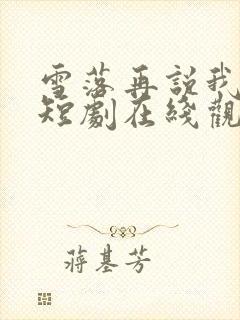 雪落再説我
短劇在綫觀
蔣基芳